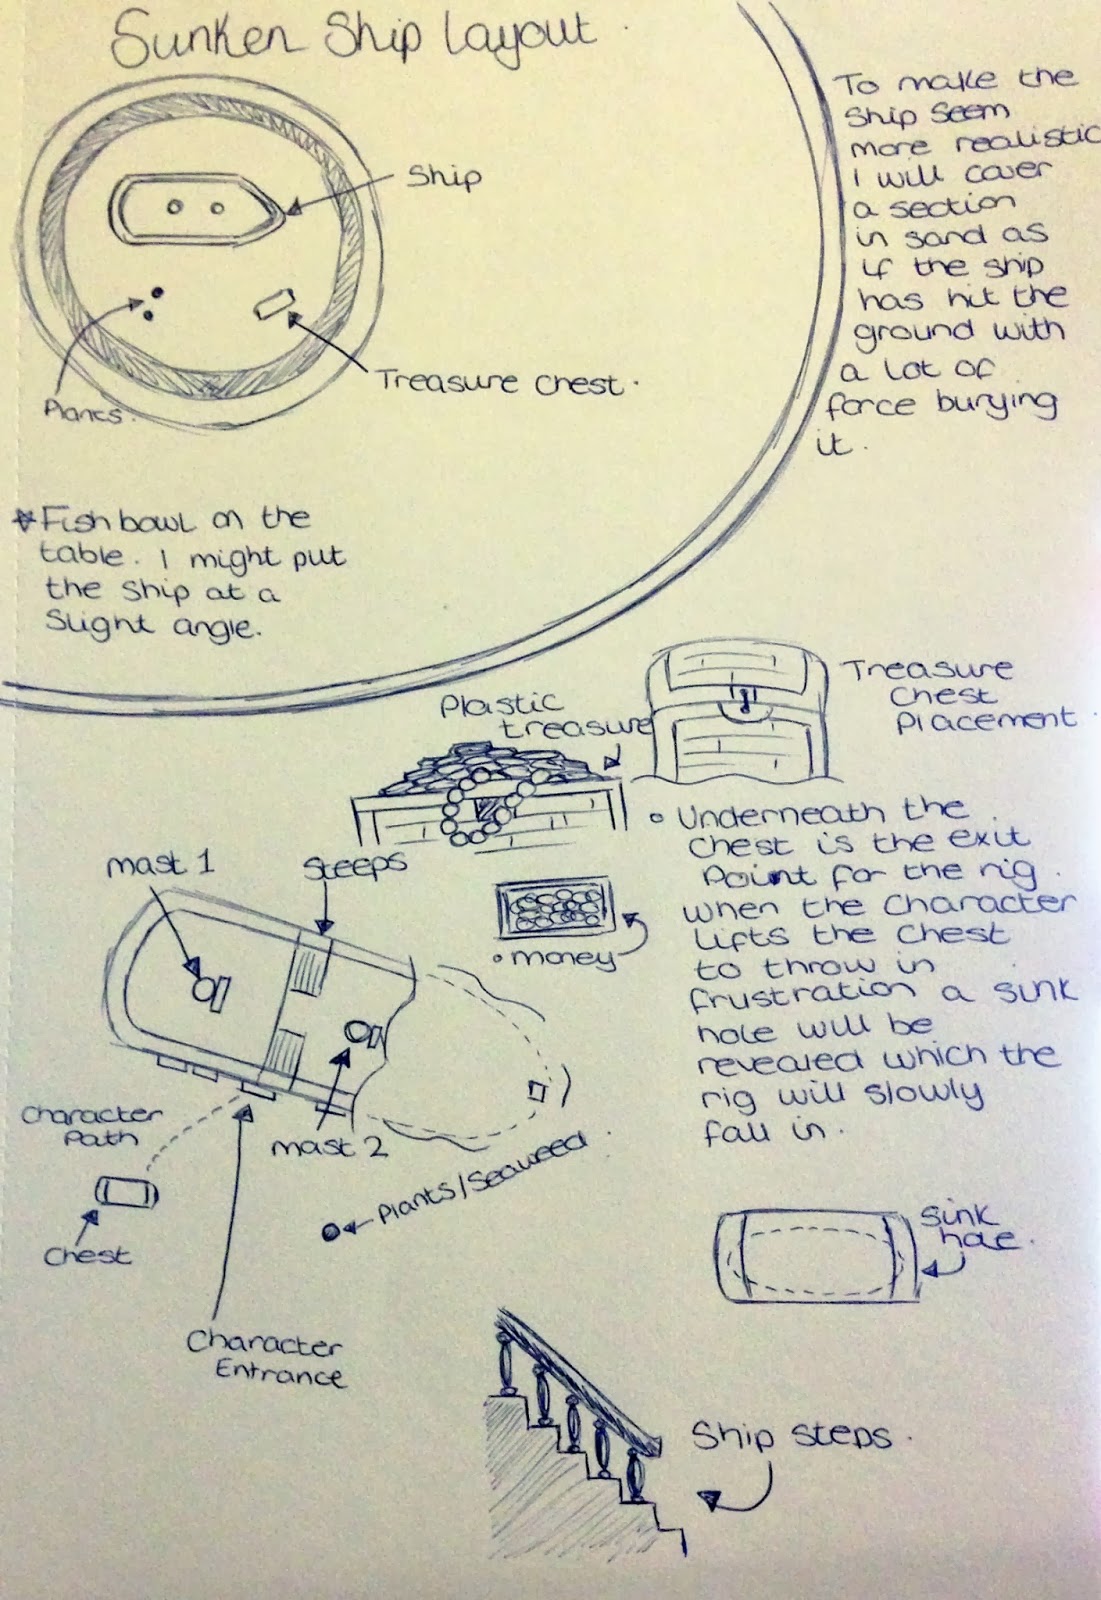 Sunken Ship Layout
Ship
Treasure Chest.
Plants.
To make the
ship seem
more realistic
I will cover
a section
in sand as
if the ship
has hit the
ground with
a lot of
force burying
it.
*Fish bowl on the
table. I might put
the ship at a
slight angle.
Plastic
treasure
Treasure
Chest
Placement.
• Underneath the
chest is the exit
Point for the rig.
when the character
lifts the chest
to throw in
frustration a sink
hole will be
revealed which the
rig will slowly
fall in.
mast 1
Steeps
• money
Character
Path
mast 2
Chest
Plants/Seaweed
Character
Entrance
sink
hole.
Ship steps.